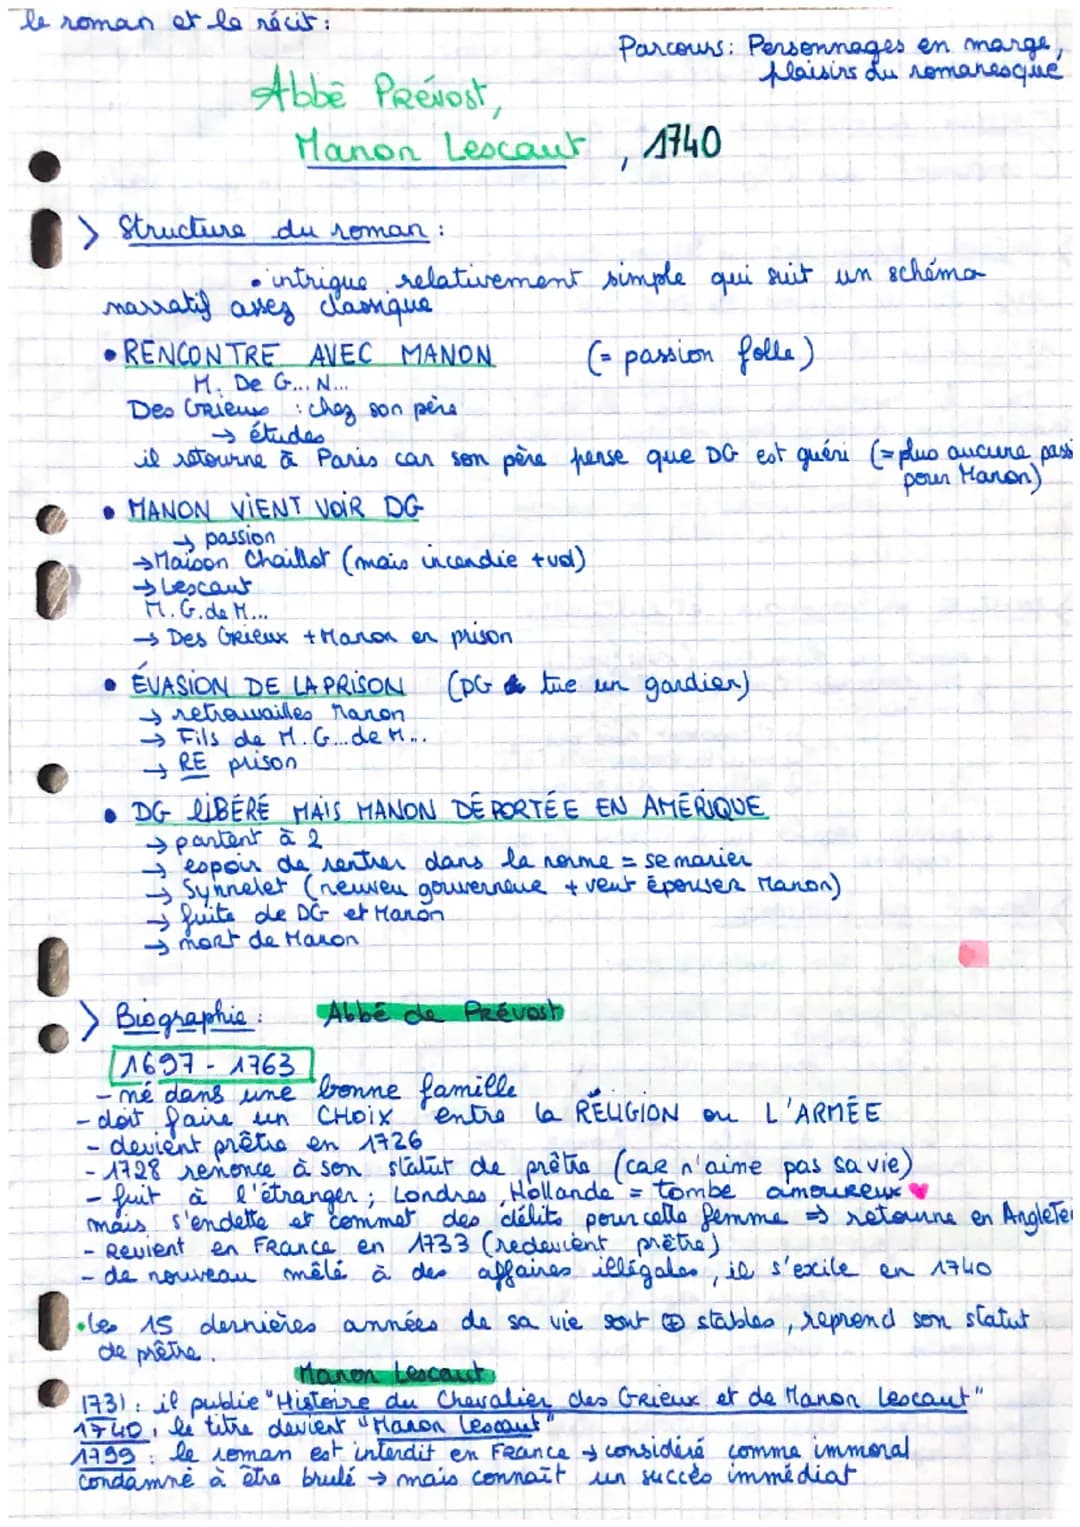 le roman et le récit :
Parcours : Personnages en marge,
plaisirs du romanesque
Abbé Prévost,
Manon Lescaut, 1740
> Structure du roman :
• intrigue relativement simple qui suit un schéma
narratif assez classique
• RENCONTRE AVEC MANON (= passion folle)
M. De G... N...
Des Grieux : chez son père
→ études
il retourne à Paris car son père pense que DG est guéri (= plus aucune pass
pour Manon)
• MANON VIENT VOIR DG
→ passion
→ Maison Chaillot (mais incendie + vol)
→ Lescaut
M. G. de M...
→ Des Grieux + Manon en prison
• ÉVASION DE LA PRISON (DG tue un gardien)
→ retrouvailles Manon
→ Fils de M. G... de M...
→ RE prison
• DG LIBÉRÉ MAIS MANON DÉPORTÉE EN AMÉRIQUE
→ partent à 2
→ espoir de rentrer dans la norme = se marier
→ Synnelet (neuveu gouverneur + veut épouser Manon)
→ fuite de DG et Manon
→ mort de Manon
> Biographie : Abbé de Prévost
1697 - 1763
- né dans une bonne famille
- doit faire un CHOIX entre la RELIGION ou L'ARMÉE
- devient prêtre en 1726
- 1728 renonce à son statut de prêtre (car n'aime pas sa vie)
- fuit à l'étranger ; Londres, Hollande = tombe amoureux ♥
mais s'endette et commet des délits pour cette femme ⇒ retourne en Angleter
- Revient en France en 1733 (redevient prêtre)
- de nouveau mêlé à des affaires illégales, il s'exile en 1740
• les 15 dernières années de sa vie sont ⊕ stables, reprend son statut
de prêtre.
Manon Lescaut
1731 : il publie "Histoire du Chevalier des Grieux et de Manon Lescaut"
1740, le titre devient "Manon Lescaut"
1799 : le roman est interdit en France → considéré comme immoral
condamné à être brulé → mais connaît un succès immédiat